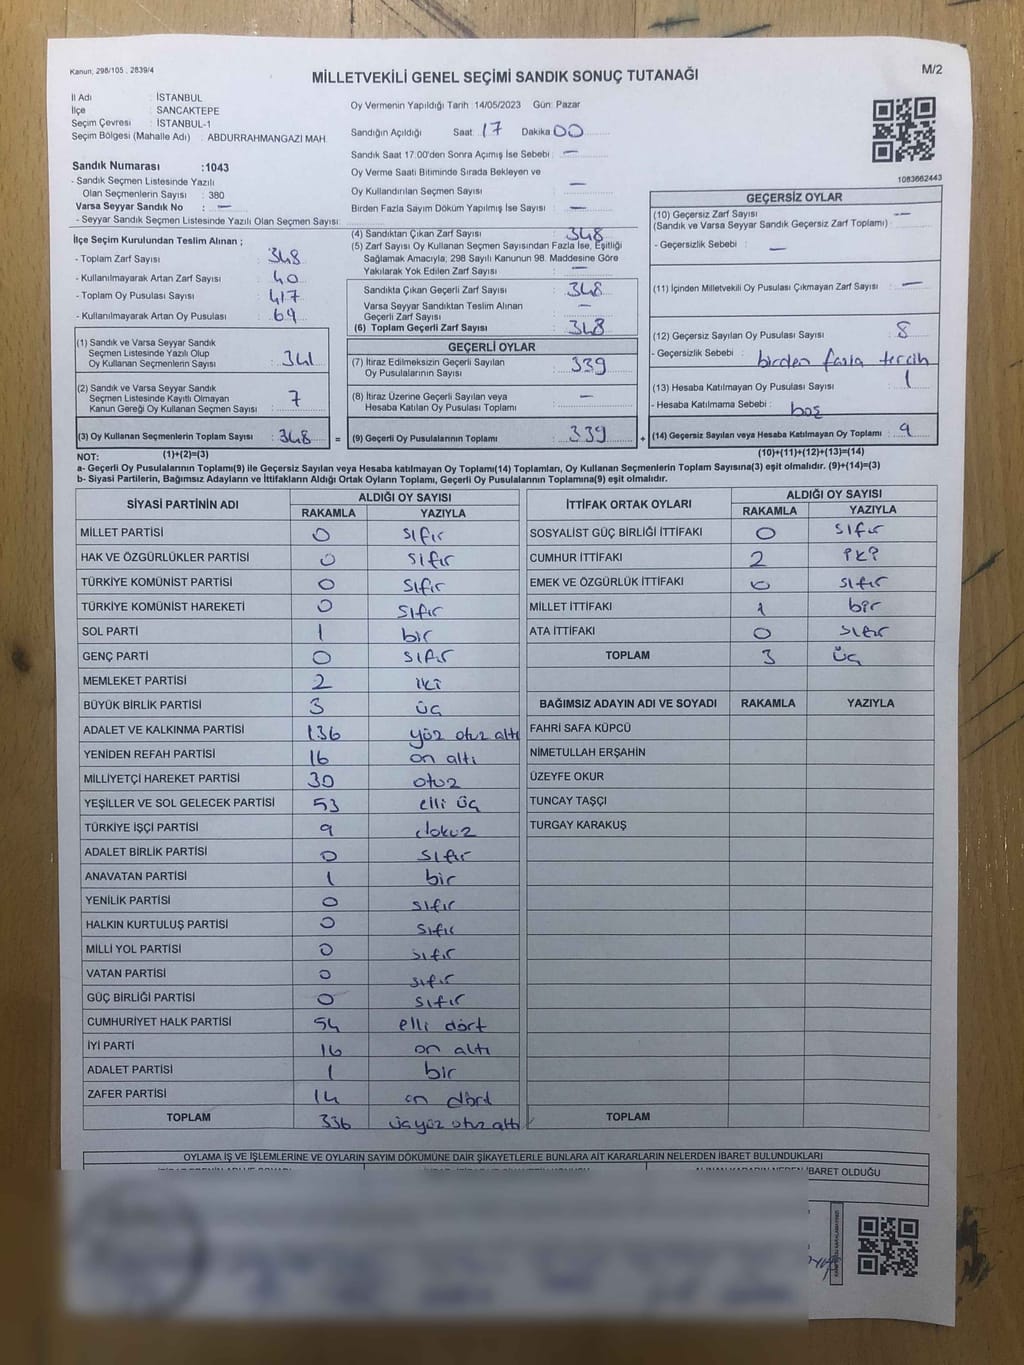 Kanun, 298/105 , 2839/4
MİLLETVEKİLİ GENEL SEÇİMİ SANDIK SONUÇ TUTANAĞI
M/2
İl Adı : İSTANBUL
İlçe : SANCAKTEPE
Seçim Çevresi : İSTANBUL-1
Seçim Bölgesi (Mahalle Adı) : ABDURRAHMANGAZI MAH.
Sandık Numarası :1043
- Sandık Seçmen Listesinde Yazılı
Olan Seçmenlerin Sayısı : 380
Varsa Seyyar Sandık No : —
- Seyyar Sandık Seçmen Listesinde Yazılı Olan Seçmen Sayısı:
Oy Vermenin Yapıldığı Tarih :14/05/2023 Gün: Pazar
Sandığın Açıldığı Saat 17 Dakika 00
Sandık Saat 17:00'den Sonra Açımış İse Sebebi : —
Oy Verme Saati Bitiminde Sırada Bekleyen ve
Oy Kullandırılan Seçmen Sayısı : —
Birden Fazla Sayım Döküm Yapılmış İse Sayısı : —
1083662443
İlçe Seçim Kurulundan Teslim Alınan ;
- Toplam Zarf Sayısı : 348
- Kullanılmayarak Artan Zarf Sayısı : 40
- Toplam Oy Pusulası Sayısı : 417
- Kullanılmayarak Artan Oy Pusulası : 69
(1) Sandık ve Varsa Seyyar Sandık
Seçmen Listesinde Yazılı Olup
Oy Kullanan Seçmenlerin Sayısı : 341
(2) Sandık ve Varsa Seyyar Sandık
Seçmen Listesinde Kayıtlı Olmayan
Kanun Gereği Oy Kullanan Seçmen Sayısı : 7
(3) Oy Kullanan Seçmenlerin Toplam Sayısı : 348 =
(4) Sandıktan Çıkan Zarf Sayısı : 348
(5) Zarf Sayısı Oy Kullanan Seçmen Sayısından Fazla İse, Eşitliği
Sağlamak Amacıyla, 298 Sayılı Kanunun 98. Maddesine Göre
Yakılarak Yok Edilen Zarf Sayısı : —
Sandıkta Çıkan Geçerli Zarf Sayısı : 348
Varsa Seyyar Sandıktan Teslim Alınan
Geçerli Zarf Sayısı : —
(6) Toplam Geçerli Zarf Sayısı : 348
GEÇERLİ OYLAR
(7) İtiraz Edilmeksizin Geçerli Sayılan
Oy Pusulalarının Sayısı : 339
(8) İtiraz Üzerine Geçerli Sayılan veya
Hesaba Katılan Oy Pusulası Toplamı : —
(9) Geçerli Oy Pusulalarının Toplamı : 339 +
GEÇERSİZ OYLAR
(10) Geçersiz Zarf Sayısı : —
(Sandık ve Varsa Seyyar Sandık Geçersiz Zarf Toplamı)
- Geçersizlik Sebebi : —
(11) İçinden Milletvekili Oy Pusulası Çıkmayan Zarf Sayısı : —
(12) Geçersiz Sayılan Oy Pusulası Sayısı : 8
- Geçersizlik Sebebi : birden fazla tercih
(13) Hesaba Katılmayan Oy Pusulası Sayısı : 1
- Hesaba Katılmama Sebebi : boş
(14) Geçersiz Sayılan veya Hesaba Katılmayan Oy Toplamı : 9
NOT: (1)+(2)=(3) (10)+(11)+(12)+(13)=(14)
a- Geçerli Oy Pusulalarının Toplamı(9) ile Geçersiz Sayılan veya Hesaba katılmayan Oy Toplamı(14) Toplamları, Oy Kullanan Seçmenlerin Toplam Sayısına(3) eşit olmalıdır. (9)+(14)=(3)
b- Siyasi Partilerin, Bağımsız Adayların ve İttifakların Aldığı Ortak Oyların Toplamı, Geçerli Oy Pusulalarının Toplamına(9) eşit olmalıdır.
SİYASİ PARTİNİN ADI ALDIĞI OY SAYISI
RAKAMLA YAZIYLA
MİLLET PARTİSİ 0 sıfır
HAK VE ÖZGÜRLÜKLER PARTİSİ 0 sıfır
TÜRKİYE KOMÜNİST PARTİSİ 0 sıfır
TÜRKİYE KOMÜNİST HAREKETİ 0 sıfır
SOL PARTİ 1 bir
GENÇ PARTİ 0 sıfır
MEMLEKET PARTİSİ 2 iki
BÜYÜK BİRLİK PARTİSİ 3 üç
ADALET VE KALKINMA PARTİSİ 136 yüz otuz altı
YENİDEN REFAH PARTİSİ 16 on altı
MİLLİYETÇİ HAREKET PARTİSİ 30 otuz
YEŞİLLER VE SOL GELECEK PARTİSİ 53 elli üç
TÜRKİYE İŞÇİ PARTİSİ 9 dokuz
ADALET BİRLİK PARTİSİ 0 sıfır
ANAVATAN PARTİSİ 1 bir
YENİLİK PARTİSİ 0 sıfır
HALKIN KURTULUŞ PARTİSİ 0 sıfır
MİLLİ YOL PARTİSİ 0 sıfır
VATAN PARTİSİ 0 sıfır
GÜÇ BİRLİĞİ PARTİSİ 0 sıfır
CUMHURİYET HALK PARTİSİ 54 elli dört
İYİ PARTİ 16 on altı
ADALET PARTİSİ 1 bir
ZAFER PARTİSİ 14 on dört
TOPLAM 336 üçyüz otuz altı
İTTİFAK ORTAK OYLARI ALDIĞI OY SAYISI
RAKAMLA YAZIYLA
SOSYALİST GÜÇ BİRLİĞİ İTTİFAKI 0 sıfır
CUMHUR İTTİFAKI 2 iki
EMEK VE ÖZGÜRLÜK İTTİFAKI 0 sıfır
MİLLET İTTİFAKI 1 bir
ATA İTTİFAKI 0 sıfır
TOPLAM 3 üç
BAĞIMSIZ ADAYIN ADI VE SOYADI RAKAMLA YAZIYLA
FAHRİ SAFA KÜPCÜ
NİMETULLAH ERŞAHİN
ÜZEYFE OKUR
TUNCAY TAŞÇI
TURGAY KARAKUŞ
TOPLAM
OYLAMA İŞ VE İŞLEMLERİNE VE OYLARIN SAYIM DÖKÜMÜNE DAİR ŞİKAYETLERLE BUNLARA AİT KARARLARIN NELERDEN İBARET BULUNDUKLARI
ALINAN KARARIN NEDEN İBARET OLDUĞU